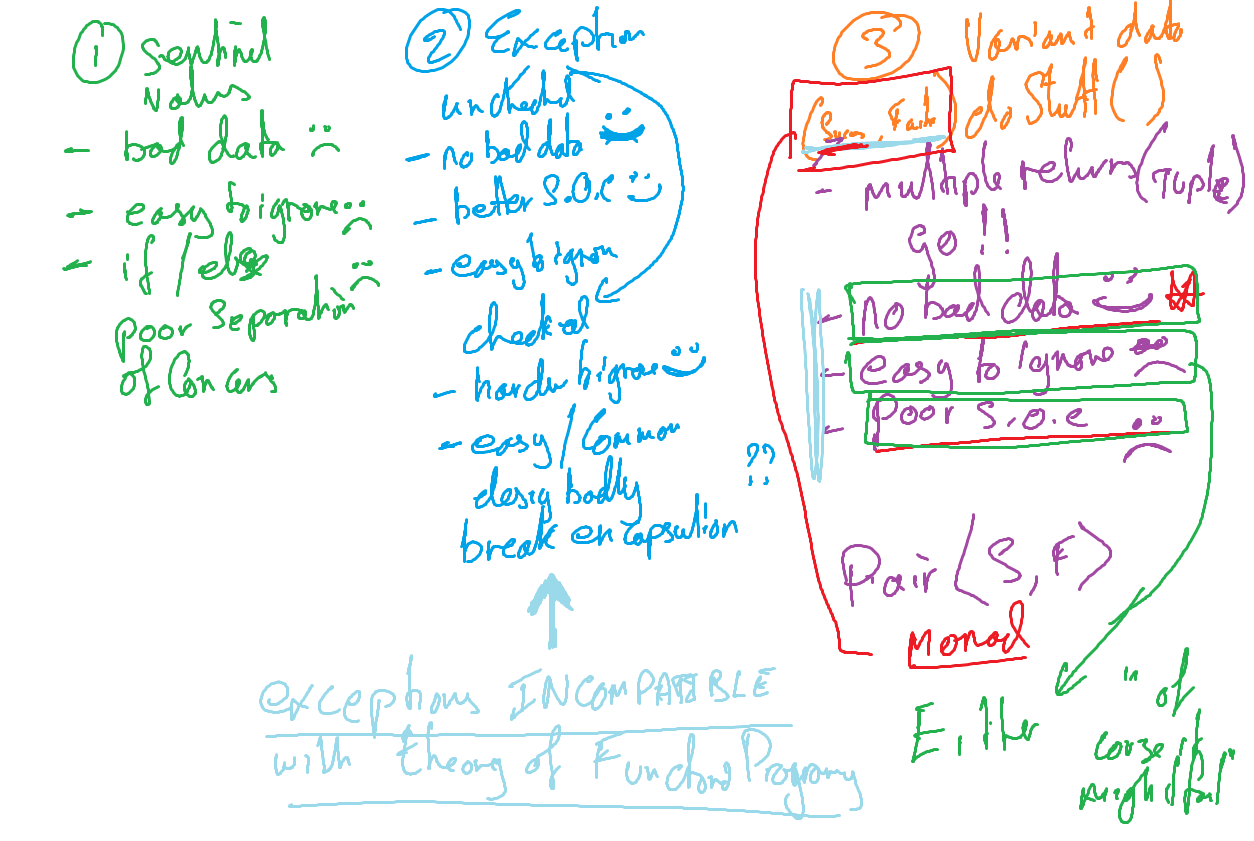 1 Sentinel
Values
- bad data
- easy to ignore
- if / else
poor separation
of Concerns
2 Exception
unchecked
- no bad data
- better S.O.C
- easy to ignore
checked
- harder to ignore
- easy / Common
design badly
break encapsulation
??
exceptions INCOMPATIBLE
with theory of Functional Programming
3 Variant data
(Success, Failure) doStuff()
- multiple returns (Tuple)
GO!!
- no bad data
- easy to ignore
- poor S.O.C
Pair<S,F>
Monad
Either
"of
corse it
might fail"